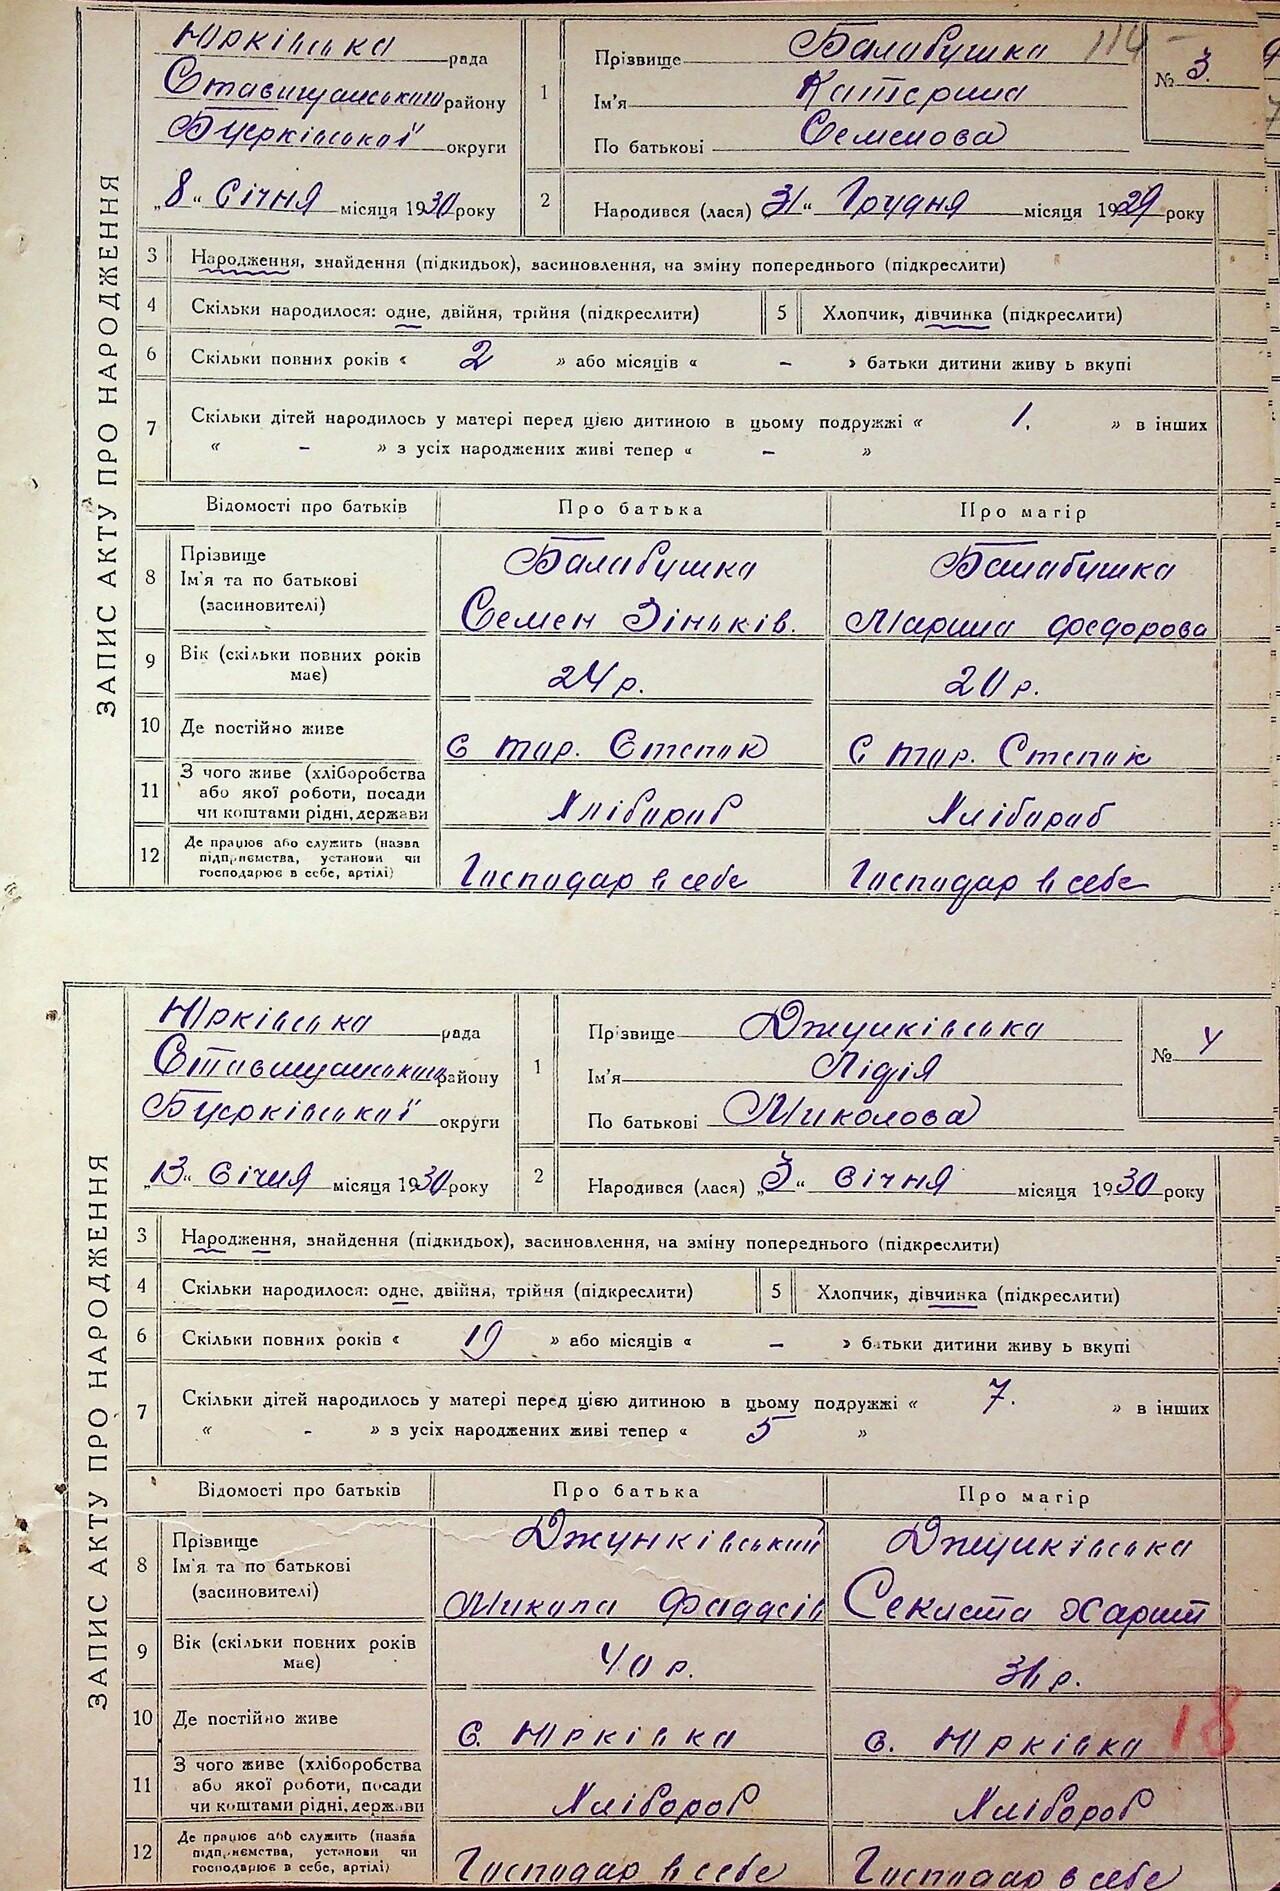 ЗАПИС АКТУ ПРО НАРОДЖЕННЯ
Юрківська рада
Ставищанського району
округи
„8“ Січня місяця 1930 року
1
Прізвище Балабушка
Ім'я Катерина
По батькові Семенова
114
№ 3.
2
Народився (лася) 31“ Грудня місяця 1929 року
3 Народження, знайдення (підкидьок), засиновлення, на зміну попереднього (підкреслити)
4 Скільки народилося: одне, двійня, трійня (підкреслити) 5 Хлопчик, дівчинка (підкреслити)
6 Скільки повних років « 2 » або місяців « - » батьки дитини живуть вкупі
7 Скільки дітей народилось у матері перед цією дитиною в цьому подружжі « 1. » в інших
« - » з усіх народжених живі тепер « - »
Відомості про батьків Про батька Про матір
8 Прізвище
Ім'я та по батькові
(засиновителі)
Балабушка Балабушка
Семен Зіньків. Марина Федорова
9 Вік (скільки повних років має) 24 р. 20 р.
10 Де постійно живе С тар. Степок С тар. Степок
11 З чого живе (хліборобства
або якої роботи, посади
чи коштами рідні, держави
Хлібороб Хлібороб
12 Де працює або служить (назва
підприємства, установи чи
господарює в себе, артілі)
Господар в себе Господар в себе
ЗАПИС АКТУ ПРО НАРОДЖЕННЯ
Юрківська рада
Ставищанського району
округи
„13“ Січня місяця 1930 року
1
Прізвище Джунківська
Ім'я Лідія
По батькові Миколова
№ 4
2
Народився (лася) „3“ Січня місяця 1930 року
3 Народження, знайдення (підкидьок), засиновлення, на зміну попереднього (підкреслити)
4 Скільки народилося: одне, двійня, трійня (підкреслити) 5 Хлопчик, дівчинка (підкреслити)
6 Скільки повних років « 19 » або місяців « - » батьки дитини живуть вкупі
7 Скільки дітей народилось у матері перед цією дитиною в цьому подружжі « 7. » в інших
« - » з усіх народжених живі тепер « 5 »
Відомості про батьків Про батька Про матір
8 Прізвище
Ім'я та по батькові
(засиновителі)
Джунківський Джунківська
Микола Фаддєів Харит
9 Вік (скільки повних років має) 40 р. 36 р.
10 Де постійно живе с. Юрківка с. Юрківка
18
11 З чого живе (хліборобства
або якої роботи, посади
чи коштами рідні, держави
Хлібороб Хлібороб
12 Де працює або служить (назва
підприємства, установи чи
господарює в себе, артілі)
Господар в себе Господар в себе